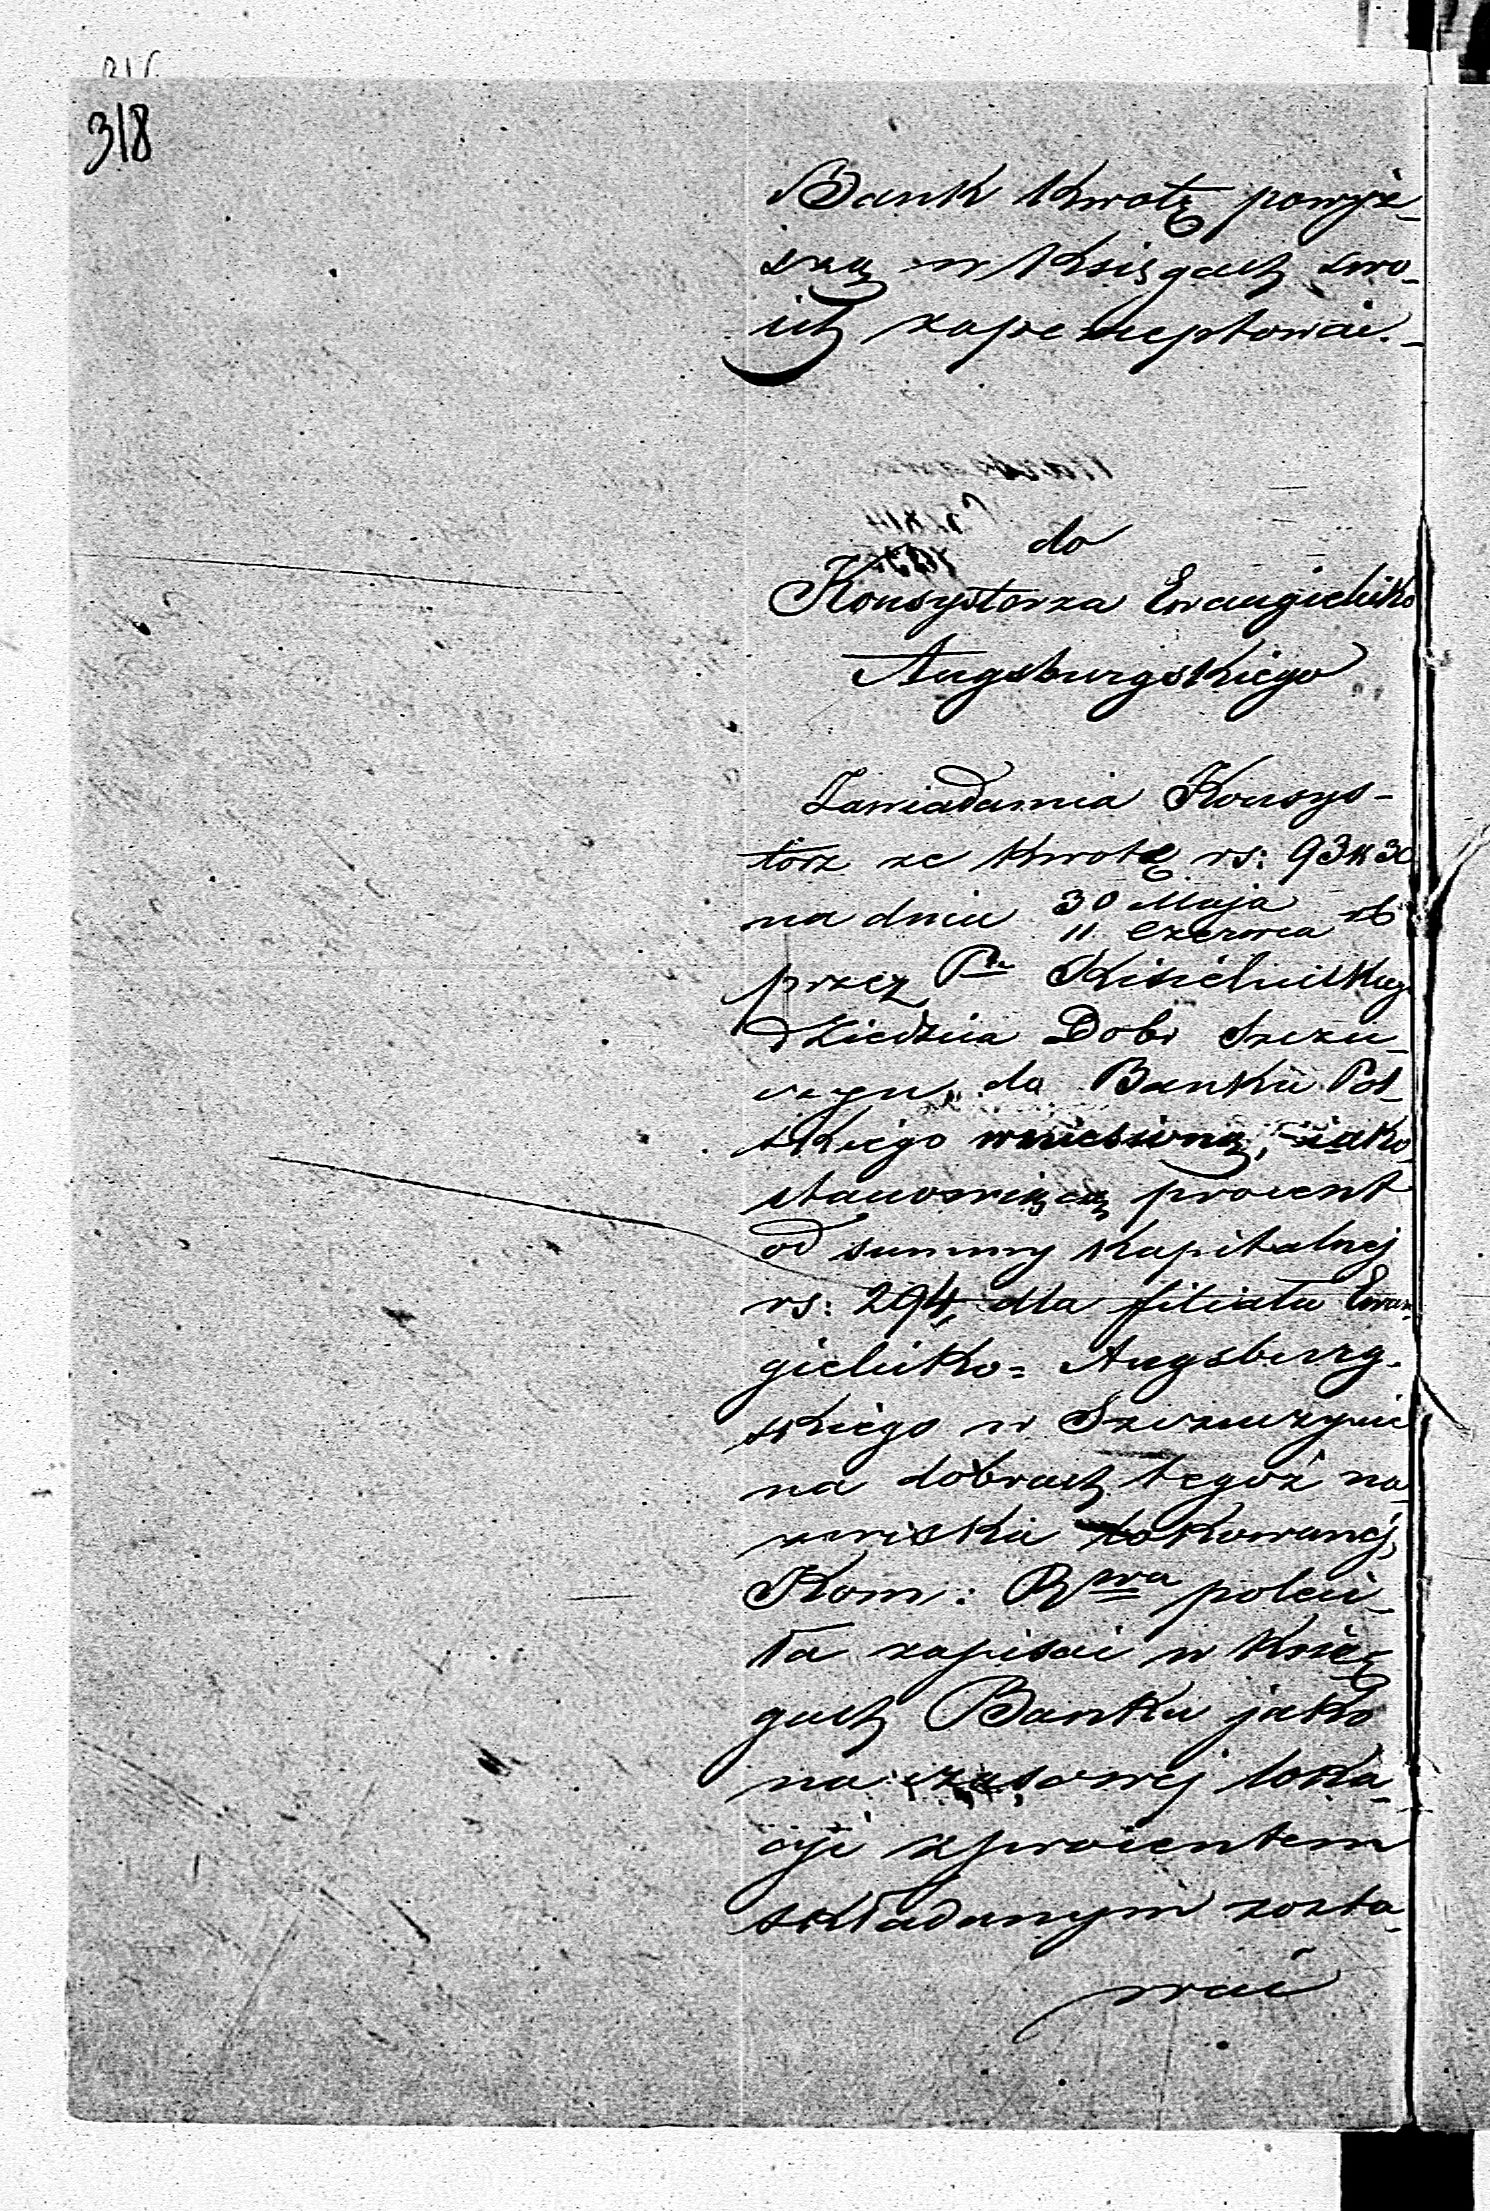 318
Bank Kwotę powyż-
szą w Księgach swo-
ich zaperceptować.-
do
Konsystorza Ewangielicko
Augsburgskiego
Zawiadamia Konsys-
torz że kwotę rs: 93 k 30
na dniu 30 Maja
11 Czerwca rb
przez Pa Kisielnickiego
Dziedzica Dobr Szczu-
czyn, do Banku Pol-
skiego wniesioną, jako
stanowiącą procent
od summy Kapitalnej
rs: 294, dla filiału Ewan-
gielicko- Augsburg-
skiego w Szczuczynie
na dobrach tegoż na-
zwiska lokowanej,
Kom: Rwa poleci-
ła zapisać w Księ-
gach Banku jako
na czasowej loka-
cyi z procentem
składanym zosta-
wać